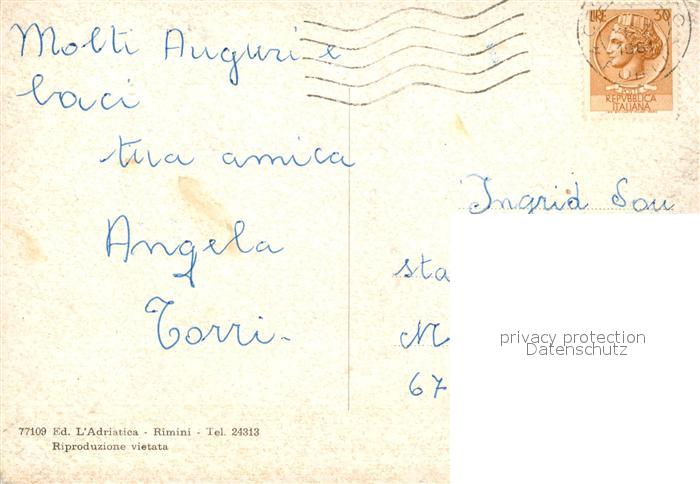 Molti Auguri e
baci
tua amica
Angela
Torri-
Ingrid Sou
sta
M
67
LIRE 30
POSTE
REPVBBLICA
ITALIANA
privacy protection
Datenschutz
77109 Ed. L'Adriatica - Rimini - Tel. 24313
Riproduzione vietata